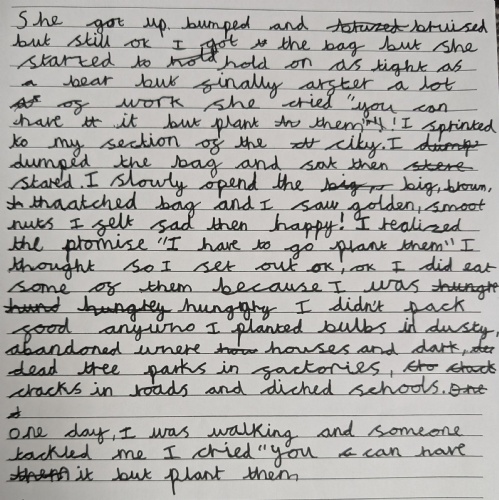 She got up bumped and bruised
but still ok I got to the bag but she
started to hold on as tight as
a bear but finally argter a lot
of work she cried "you can
have it but plant them"! I sprinted
to my section of the city. I
dumped the bag and sat then
stared. I slowly opend the big, brown,
thaatched bag and I saw golden, smoot
nuts I felt sad then happy! I realized
the promise "I have to go plant them" I
thought so I set out ok, ok I did eat
some of them because I was
hungry I didn't pack
good anywho I planted bulbs in dusty,
abandoned where houses and dark,
dead tree parks in factories,
cracks in roads and diched schools.
One day, I was walking and someone
tackled me I cried "you can have
it but plant them